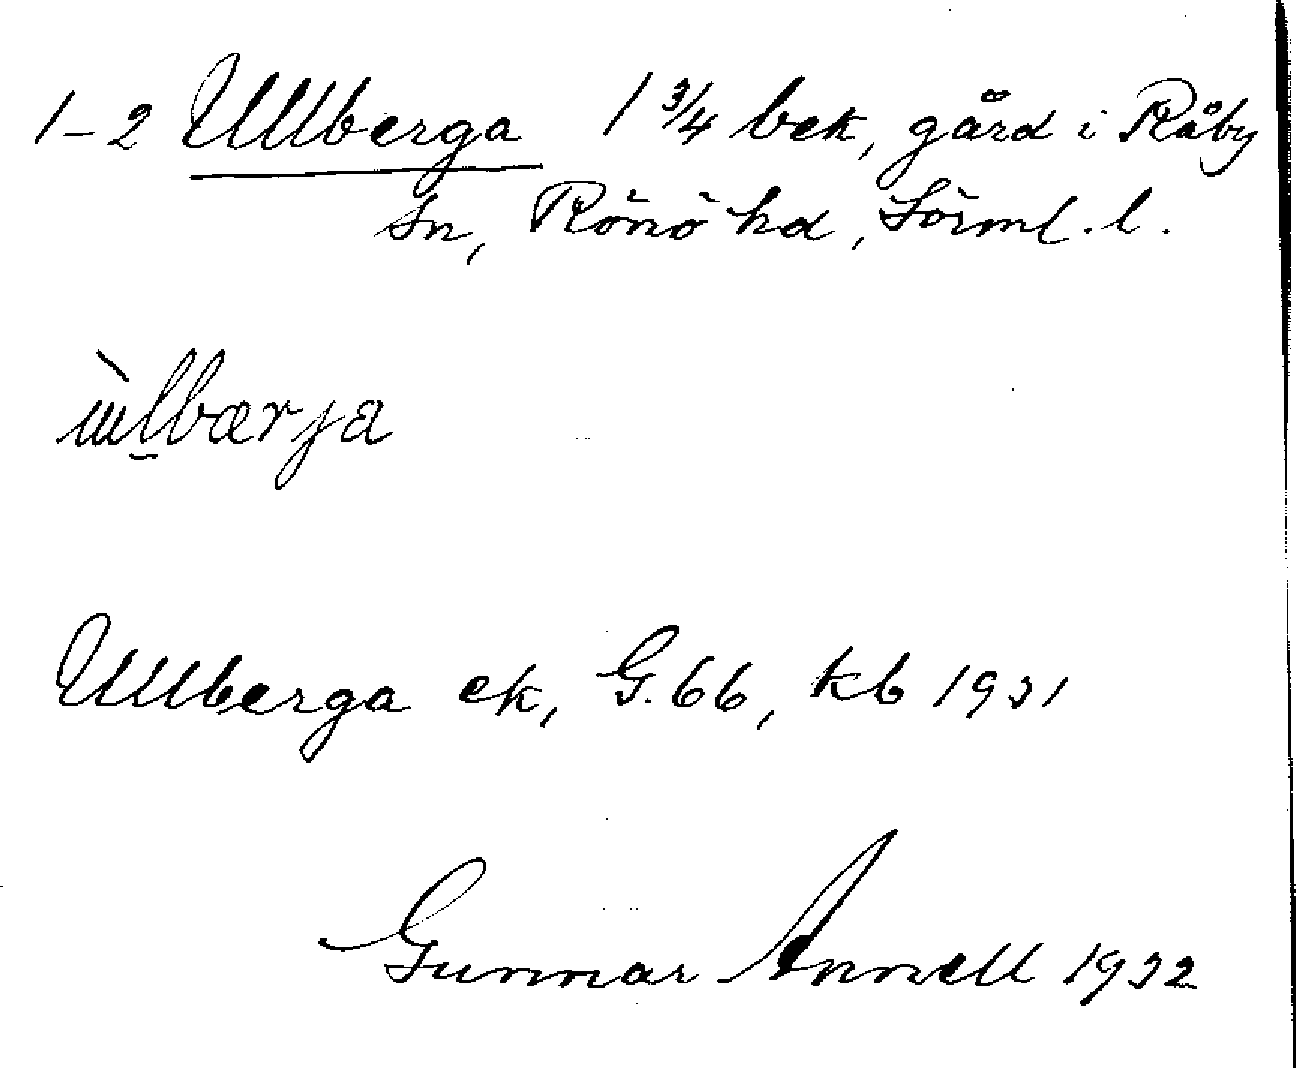 1-2 Ullberga 1 3/4 bek, gård i Råby
sn, Rönö hd, Sörml. l.
ùl̠bærja
Ullberga ek, G. 66, kb 1931
Gunnar Annell 1932